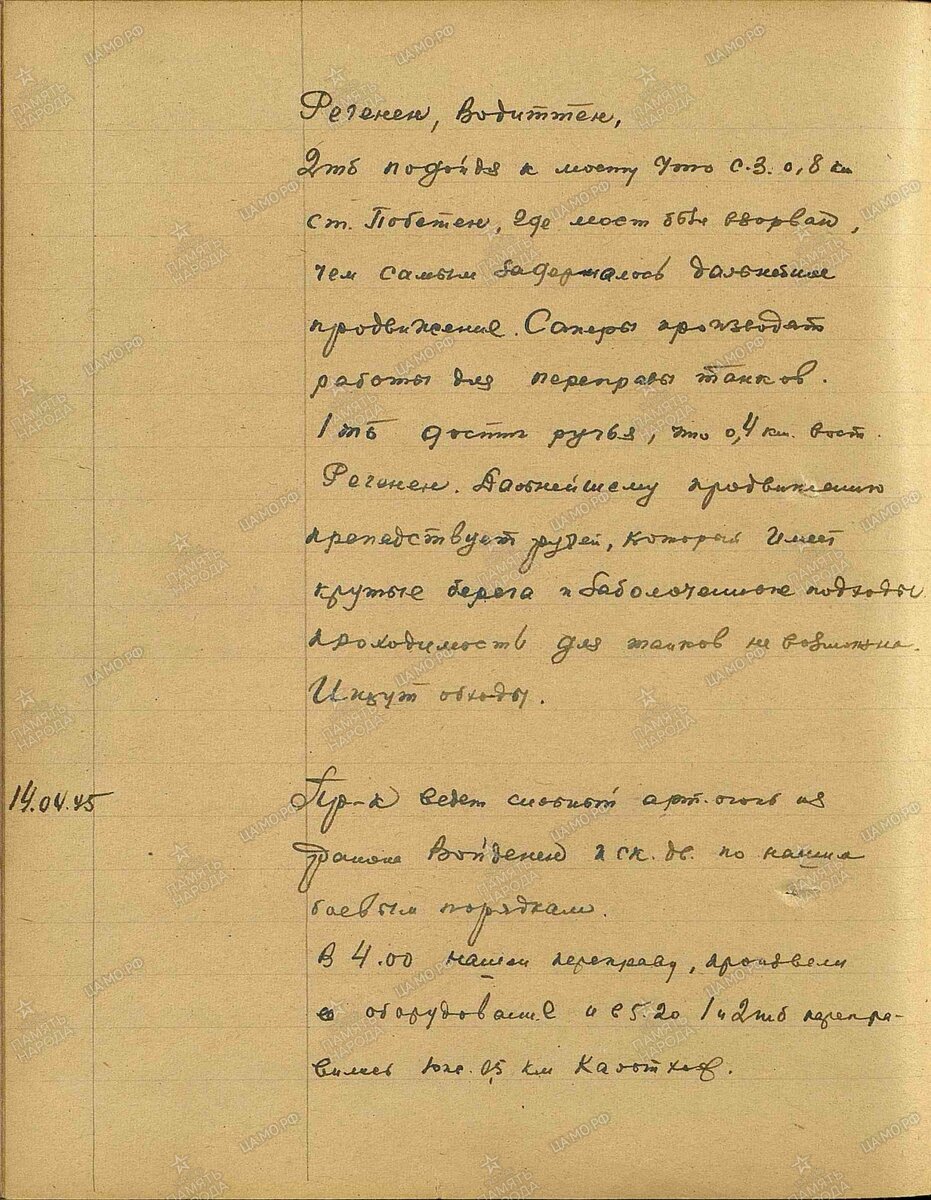 Регенен, Водиттен,
2тб подойдя к мосту что с.з. 0,8 км
ст. Побетен, где мост был взорван,
чем самым задержалось дальнейшее
продвижение. Саперы производят
работы для переправы танков.
1 тб достиг ручья, что 0,4 км. вост.
Регенен. Дальнейшему продвижению
препядствует ручей, который имеет
крутые берега и заболоченные подходы
проходимость для танков не возможна.
Ищут обходы.
14.04.45 Пр-к ведет сильный арт. огонь из
района Войденен и ск. дв. по нашим
боевым порядкам.
В 4.00 нашли переправу, произвели
оборудование и с 5.20 1 и 2тб перепра-
вились юж. 0,5 км